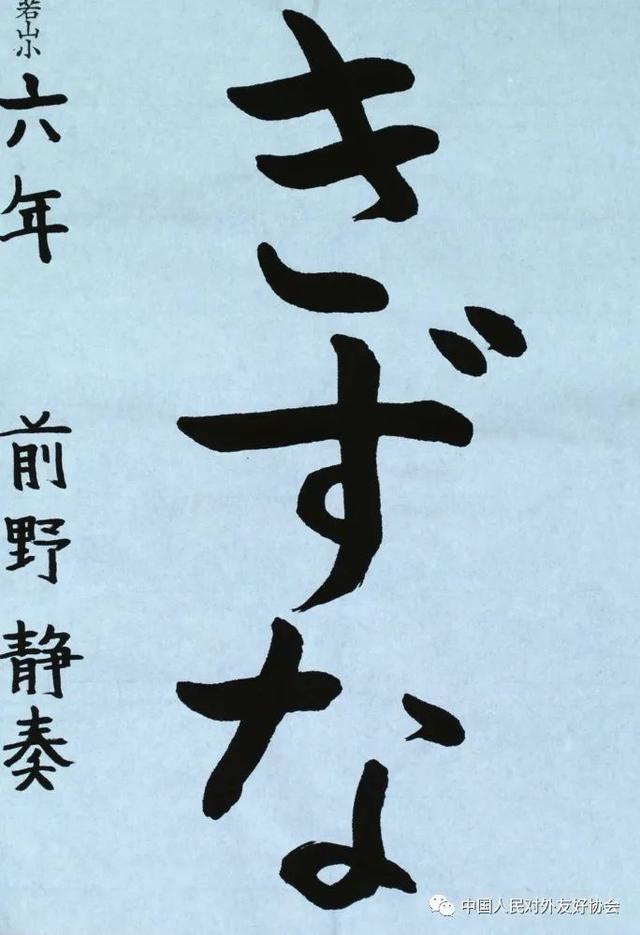 きずな
若山小
六年 前野静奏
中国人民对外友好协会